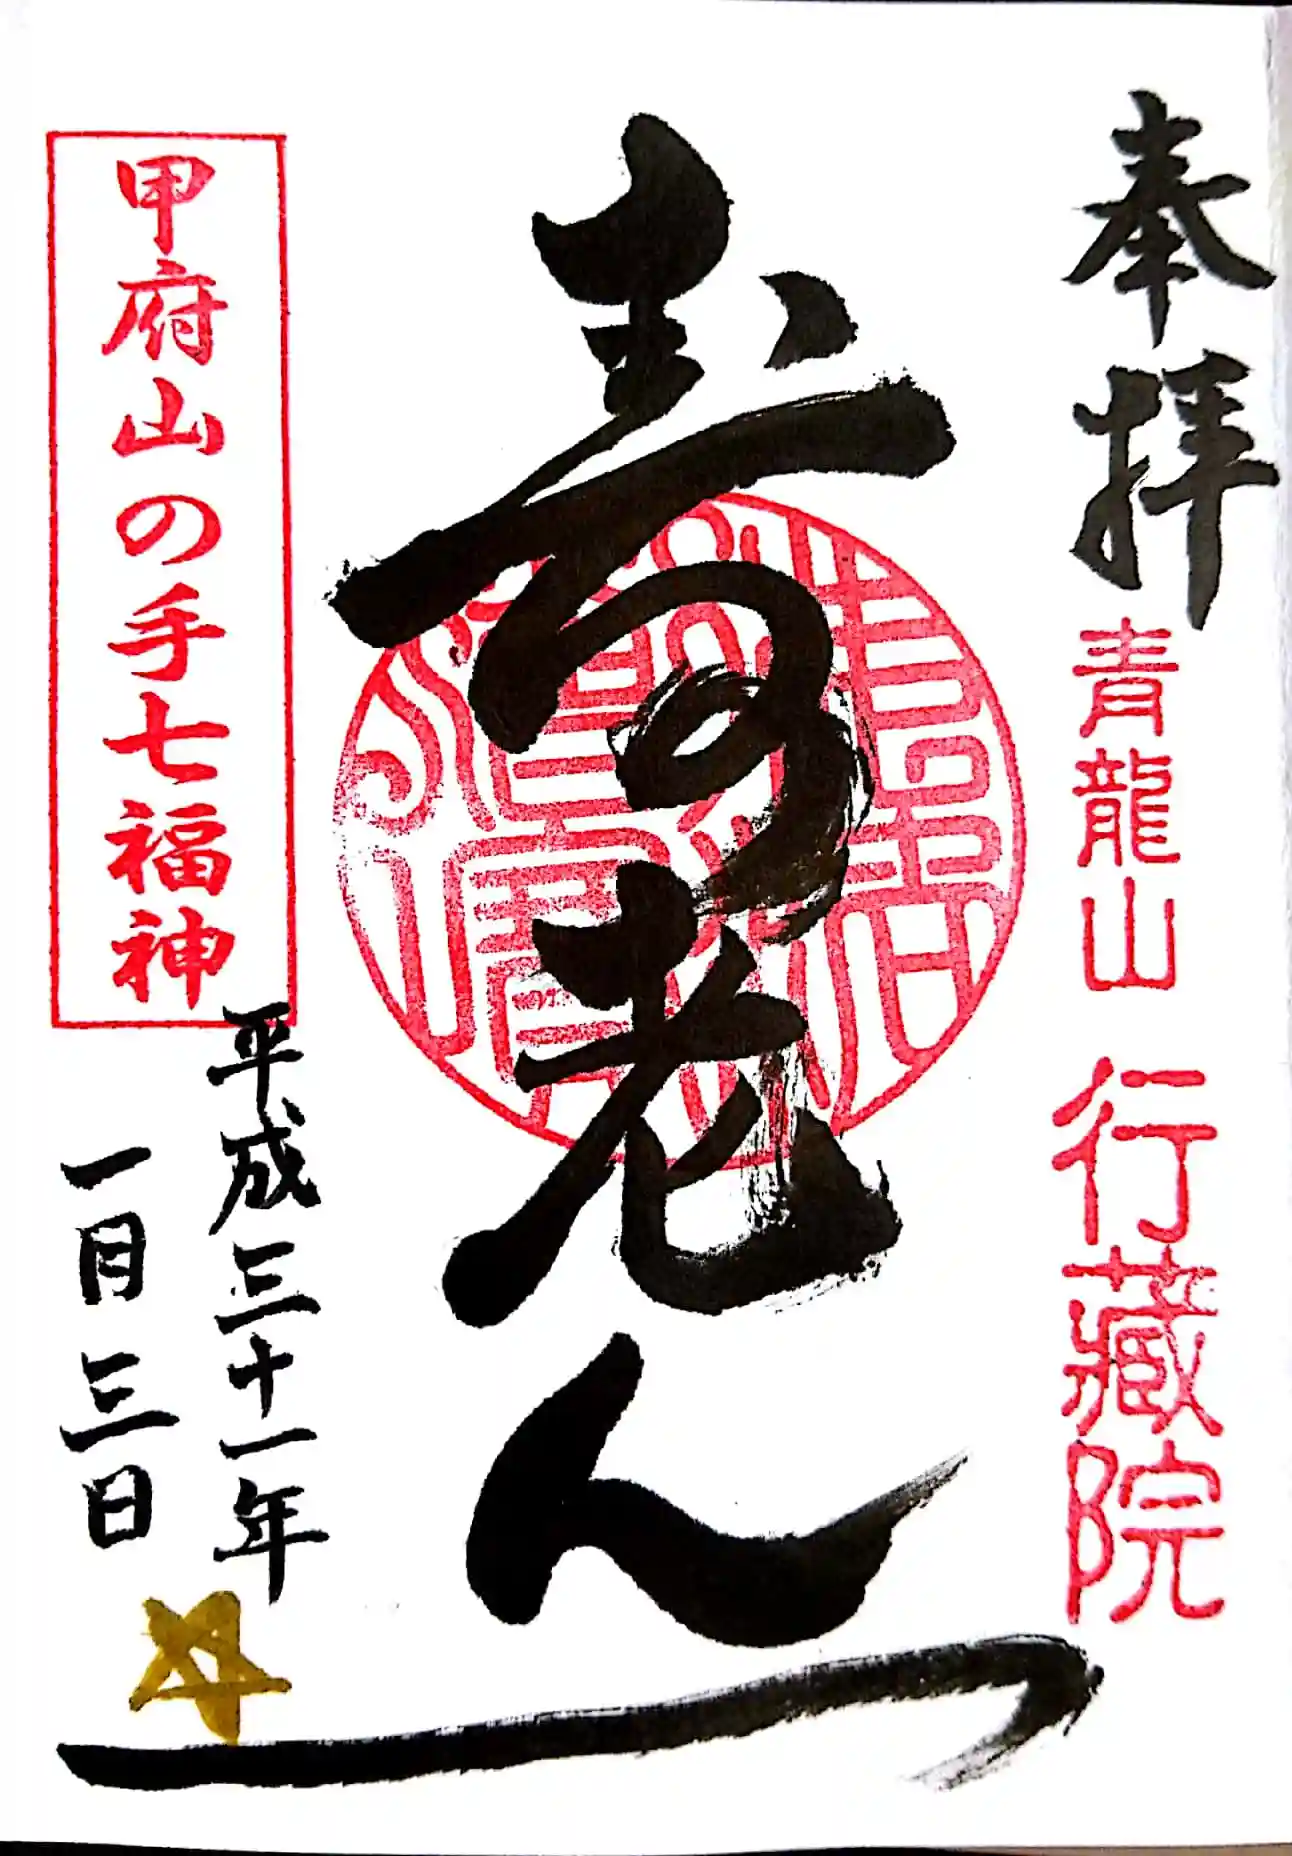 奉拝
青龍山
行蔵院
寿老人
甲府山の手七福神
平成三十一年
一月三日